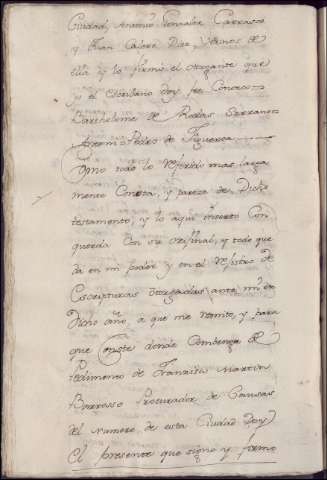 Ciudad, Antonio Gonzalez Carrasco
y Juan Calero Diaz, Vecinos de
ella y lo firmó el otorgante que
yo el Escribano doy fee Conozco
Bartholome de Rodas Serrano
Antemi Pedro de Figueroa
Como todo lo referido mas larga
mente Consta, y pareze de Dicho
testamento, y lo aqui inserto Con
querda Con su original, y todo que
da en mi poder y en el rexistro de
Escripturas otorgadas ante mi en
Dicho año, a que me remito, y para
que Conste donde Combenga de
Pedimento de Francisco Martin
Barroso Procurador de Causas
del numero de esta Ciudad Doy
El presente que signo y firmo